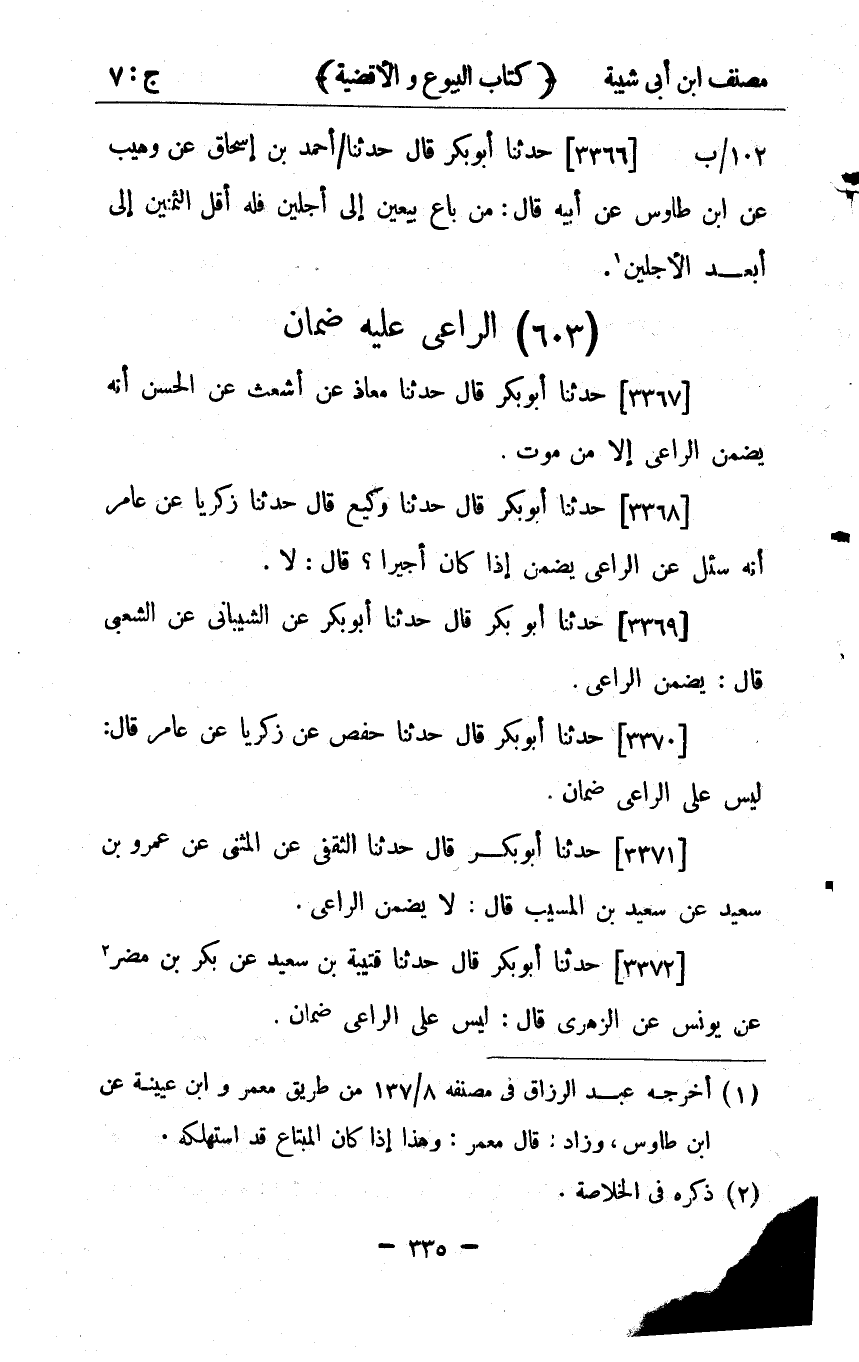 مصنف ابن أبى شيبة ﴿ كتاب البيوع و الأقضية ﴾ ج : ٧
١٠٢/ب [٣٣٦٦] حدثنا أبوبكر قال حدثنا/أحمد بن إسحاق عن وهيب
عن ابن طاوس عن أبيه قال : من باع بيعين إلى أجلين فله أقل الثمنين إلى
أبعـــد الأجلين١.
(٦٠٣) الراعى عليه ضمان
[٣٣٦٧] حدثنا أبوبكر قال حدثنا معاذ عن أشعث عن الحسن أنه
يضمن الراعى إلا من موت .
[٣٣٦٨] حدثنا أبوبكر قال حدثنا وكيع قال حدثنا زكريا عن عامر
أنه سئل عن الراعى يضمن إذا كان أجيرا ؟ قال : لا .
[٣٣٦٩] حدثنا أبو بكر قال حدثنا أبوبكر عن الشيبانى عن الشعبى
قال : يضمن الراعى .
[٣٣٧٠] حدثنا أبوبكر قال حدثنا حفص عن زكريا عن عامر قال:
ليس على الراعى ضمان .
[٣٣٧١] حدثنا أبوبكـــر قال حدثنا الثقفى عن المثنى عن عمرو بن
سعيد عن سعيد بن المسيب قال : لا يضمن الراعى .
[٣٣٧٢] حدثنا أبوبكر قال حدثنا قتيبة بن سعيد عن بكر بن مضر٢
عن يونس عن الزهرى قال : ليس على الراعى ضمان .
(١) أخرجـه عبـــد الرزاق فى مصنفه ١٣٧/٨ من طريق معمر و ابن عيينـة عن
ابن طاوس ، وزاد : قال معمر : وهذا إذا كان المبتاع قد استهلكه .
(٢) ذكره فى الخلاصة .
– ٣٣٥ –